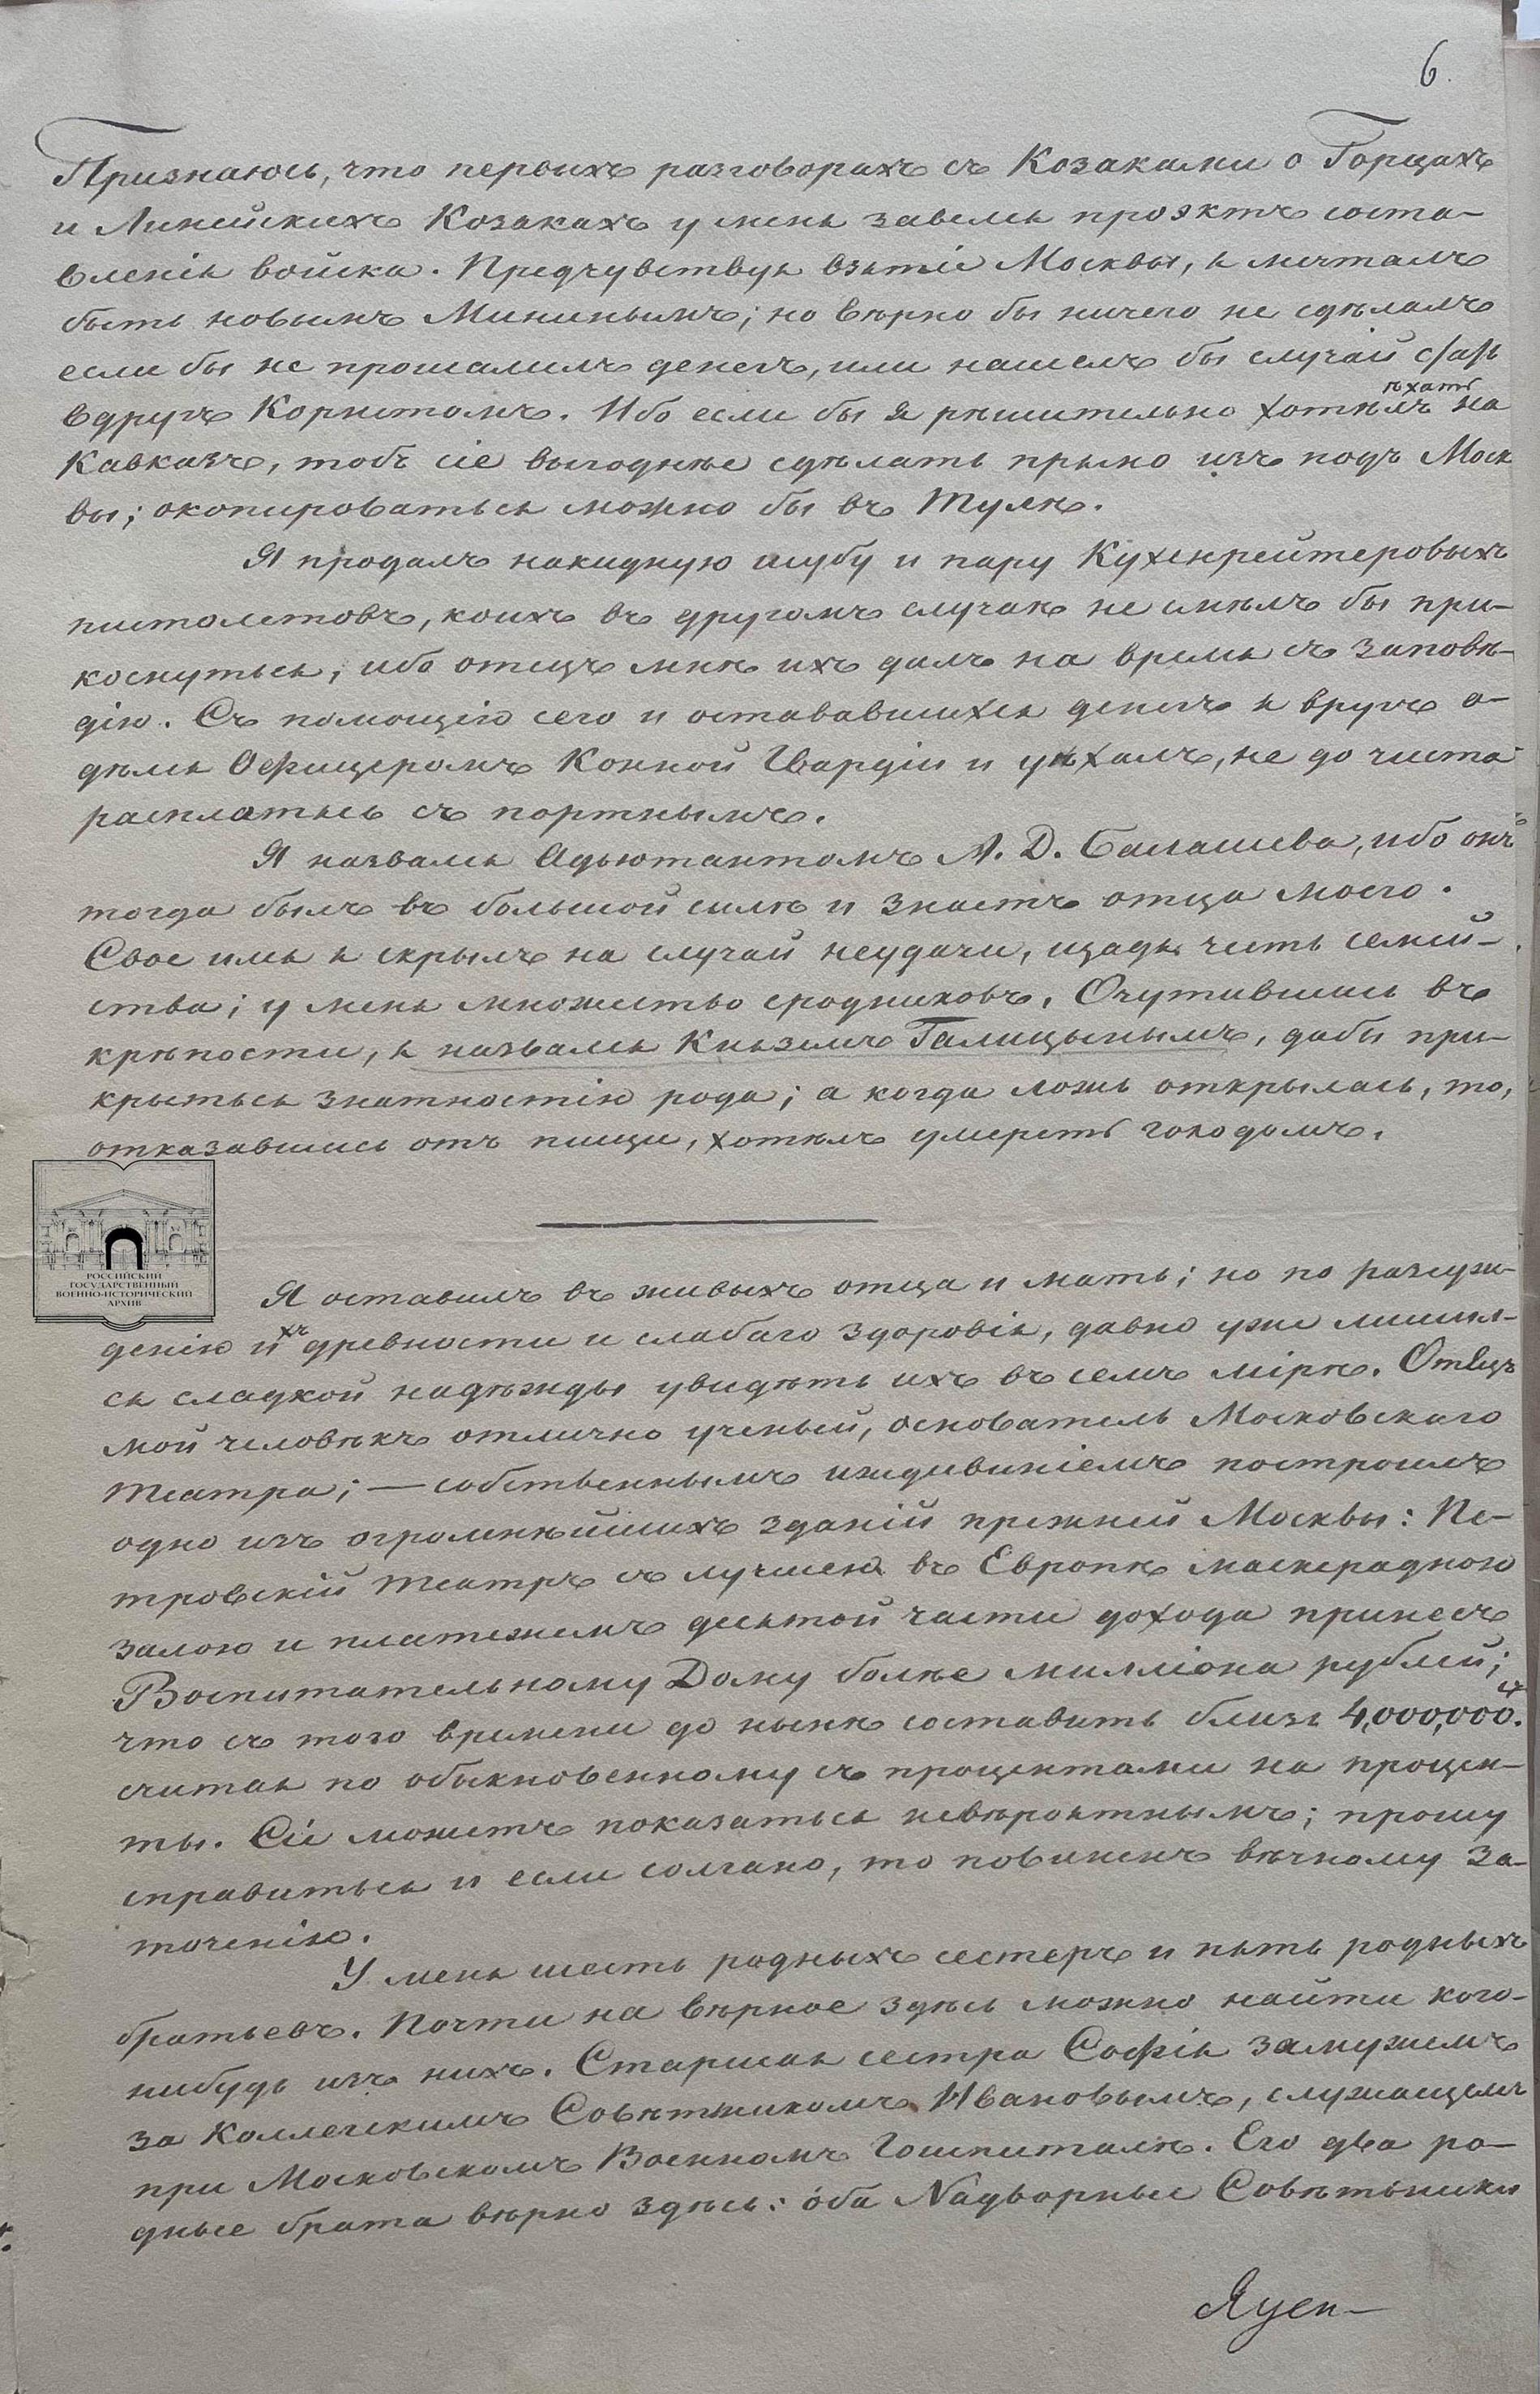 6.
Признаюсь, что первыхъ разговорахъ съ Козаками о Горцахъ
и Линейскихъ Козакахъ у меня завелся проэктъ соста-
вленія войска. Предчувствуя взятіе Москвы, я мечталъ
быть новымъ Мининымъ; но вѣрно бы ничего не сдѣлалъ
если бы не прошалилъ денегъ, или нашелъ бы случай
вдругъ Корнетомъ. Ибо если бы я рѣшительно хотѣлъ ѣхать на
Кавказъ, тобъ сіе выгоднѣе сдѣлать прямо изъ подъ Моск
вы; окопироваться можно бы въ Тулѣ.
Я продалъ накидную шубу и пару Кухенрейтеровыхъ
пистолетовъ, коихъ въ другомъ случаѣ не смѣлъ бы при-
коснуться, ибо отецъ мнѣ ихъ далъ на время съ заповѣ-
дію. Съ помощію сего и остававшихся денегъ я вругъ о-
дѣлся Офицеромъ Конной Гвардіи и уѣхалъ, не до чиста
расплатясь съ портнымъ.
Я назвался Адьютантомъ А. Д. Балашева, ибо онъ
тогда былъ въ большой силѣ и знаетъ отца моего.
Свое имя я скрылъ на случай неудачи, щадя честь семей-
ства; у меня множество сродниковъ. Очутившись въ
крѣпости, я назвался Княземъ Галицынымъ, дабы при-
крыться знатностію рода; а когда ложь открылась, то,
отказавшись отъ пищи, хотѣлъ умереть голодомъ.
РОССИЙСКИЙ
ГОСУДАРСТВЕННЫЙ
ВОЕННО-ИСТОРИЧЕСКИЙ
АРХИВ
Я оставилъ въ живыхъ отца и мать; но по разсуж-
денію ихъ древности и слабаго здоровія, давно уже лишил-
ся сладкой надѣжды увидѣть ихъ въ семъ мірѣ. Отецъ
мой человѣкъ отлично ученый, основатель Московскаго
театра; — собственнымъ иждивиніемъ построилъ
одно изъ огромнѣйшихъ зданій прежней Москвы: Пе-
тровскій театръ съ лучшею въ Европѣ маскерадною
залою и платежемъ десятой части дохода принесъ
Воспитательному Дому болѣе милліона рублей;
что съ того времени до нынѣ составитъ близь 4,000,000.
считая по обыкновенному съ процентами на процен-
ты. Сіе можетъ показаться невѣроятнымъ; прошу
справиться и если солгано, то повиненъ вѣчному за-
точенію.
У меня шесть родныхъ сестеръ и пять родныхъ
братьевъ. Почти на вѣрное здѣсь можно найти кого-
нибудь изъ нихъ. Старшая сестра Софія замужемъ
за Коллегскимъ Совѣтникомъ Ивановымъ, служащемъ
при Московскомъ Военномъ Гошпиталѣ. Его два ро-
дные брата вѣрно здѣсь: оба Надворные Совѣтьники